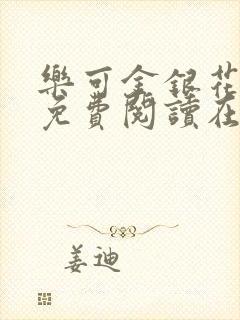 樂可金銀花
免費閱讀在
姜迪